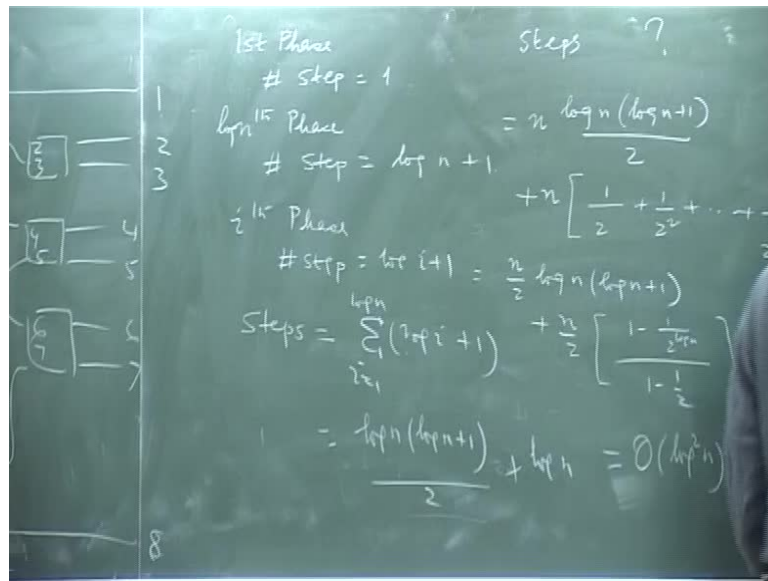 1
2
3
4
5
6
7
8
2
3
4
5
6
7
1st Phase
# step = 1
logn th Phase
# step = log n + 1
i th Phase
# step = log i + 1
logn
Steps = Σ (log i + 1)
i=1
= logn (logn+1) / 2 + logn = O(log²n)
Steps ?
= n logn (logn+1) / 2
+ n [ 1/2 + 1/2² + ... +
= n/2 logn (logn+1)
+ n/2 [ (1 - 1/2^logn) / (1 - 1/2) ]